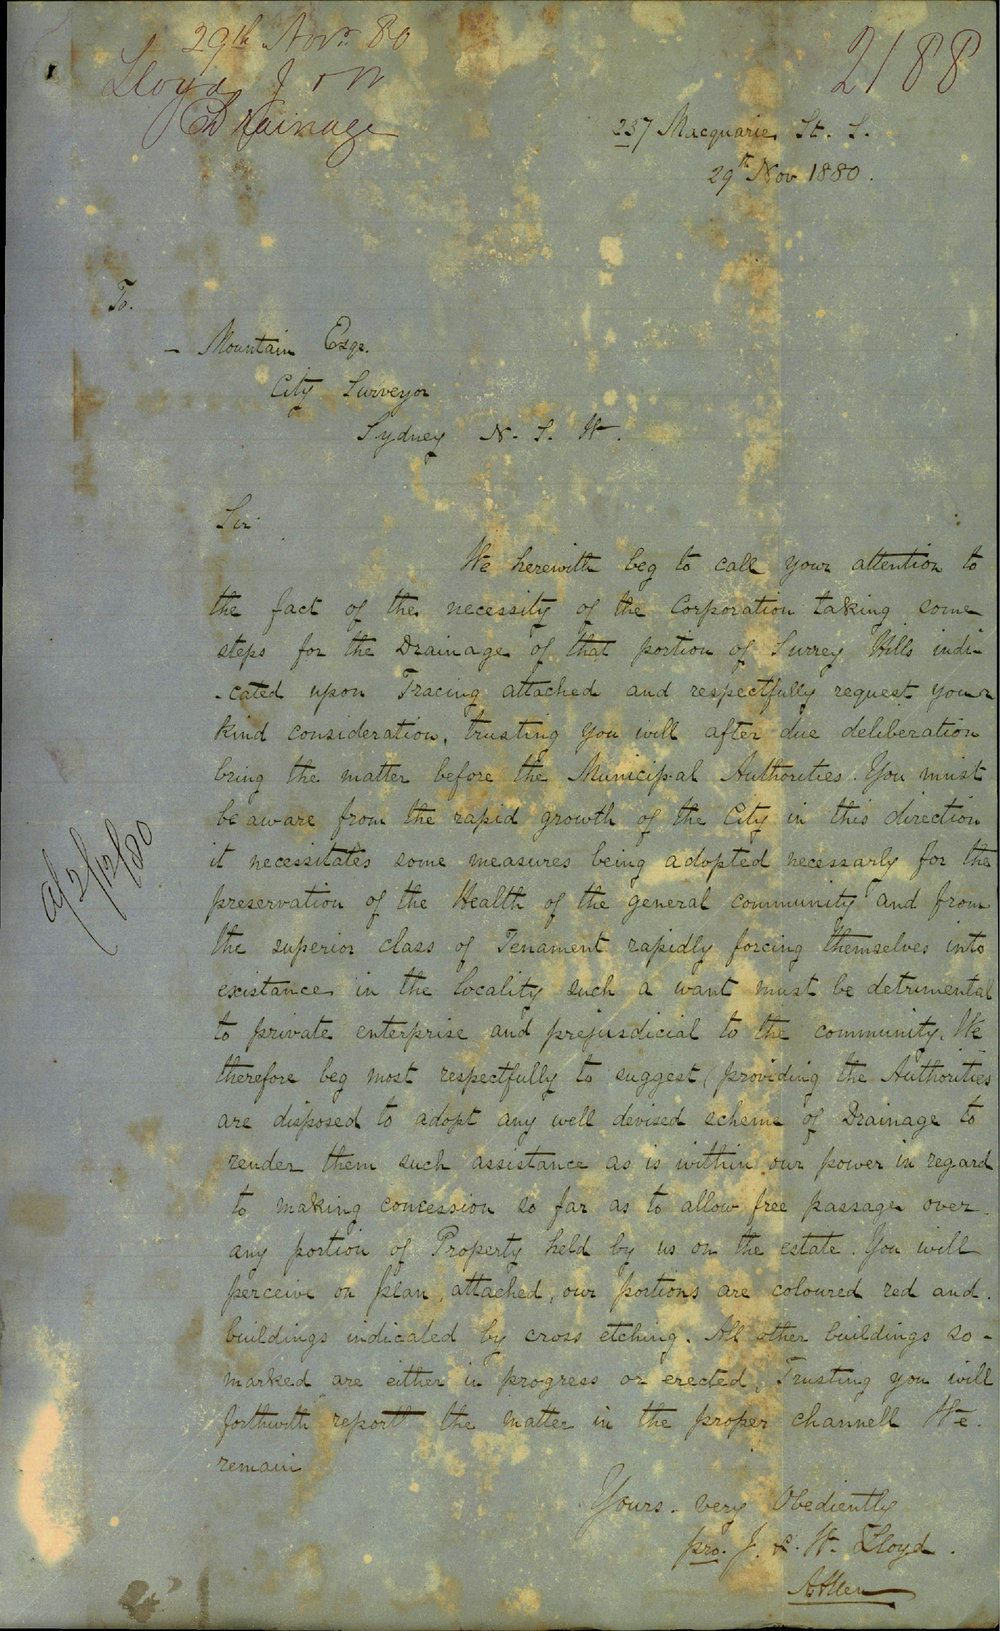 29th Novr 80
Lloyd J & W
Drainage
2188
237 Macquarie St. S.
29th Nov 1880.
To.
– Mountain Esqe.
City Surveyor
Sydney N. S. W.
Sir
We herewith beg to call your attention to
the fact of the necessity of the Corporation taking some
steps for the Drainage of that portion of Surrey Hills indi-
-cated upon Tracing attached and respectfully request your
kind consideration, trusting you will after due deliberation
bring the matter before the Municipal Authorities. You must
be aware from the rapid growth of the City in this direction
it necessitates some measures being adopted necessarly for the
preservation of the Health of the general community and from
the superior class of Tenament rapidly forcing themselves into
existance in the locality such a want must be detrimental
to private enterprise and prejusdicial to the community. We
therefore beg most respectfully to suggest (providing the Authorities
are disposed to adopt any well devised scheme of Drainage to
render them such assistance as is within our power in regard
to making concession so far as to allow free passage over
any portion of Property held by us on the estate. You will
perceive on plan, attached, our portions are coloured red and
buildings indicated by cross etching. All other buildings so-
marked are either in progress or erected, Trusting you will
forthwith report the matter in the proper channell We
remain
Yours. very Obediently
pro. J. & W. Lloyd.
A Allen
2/12/80